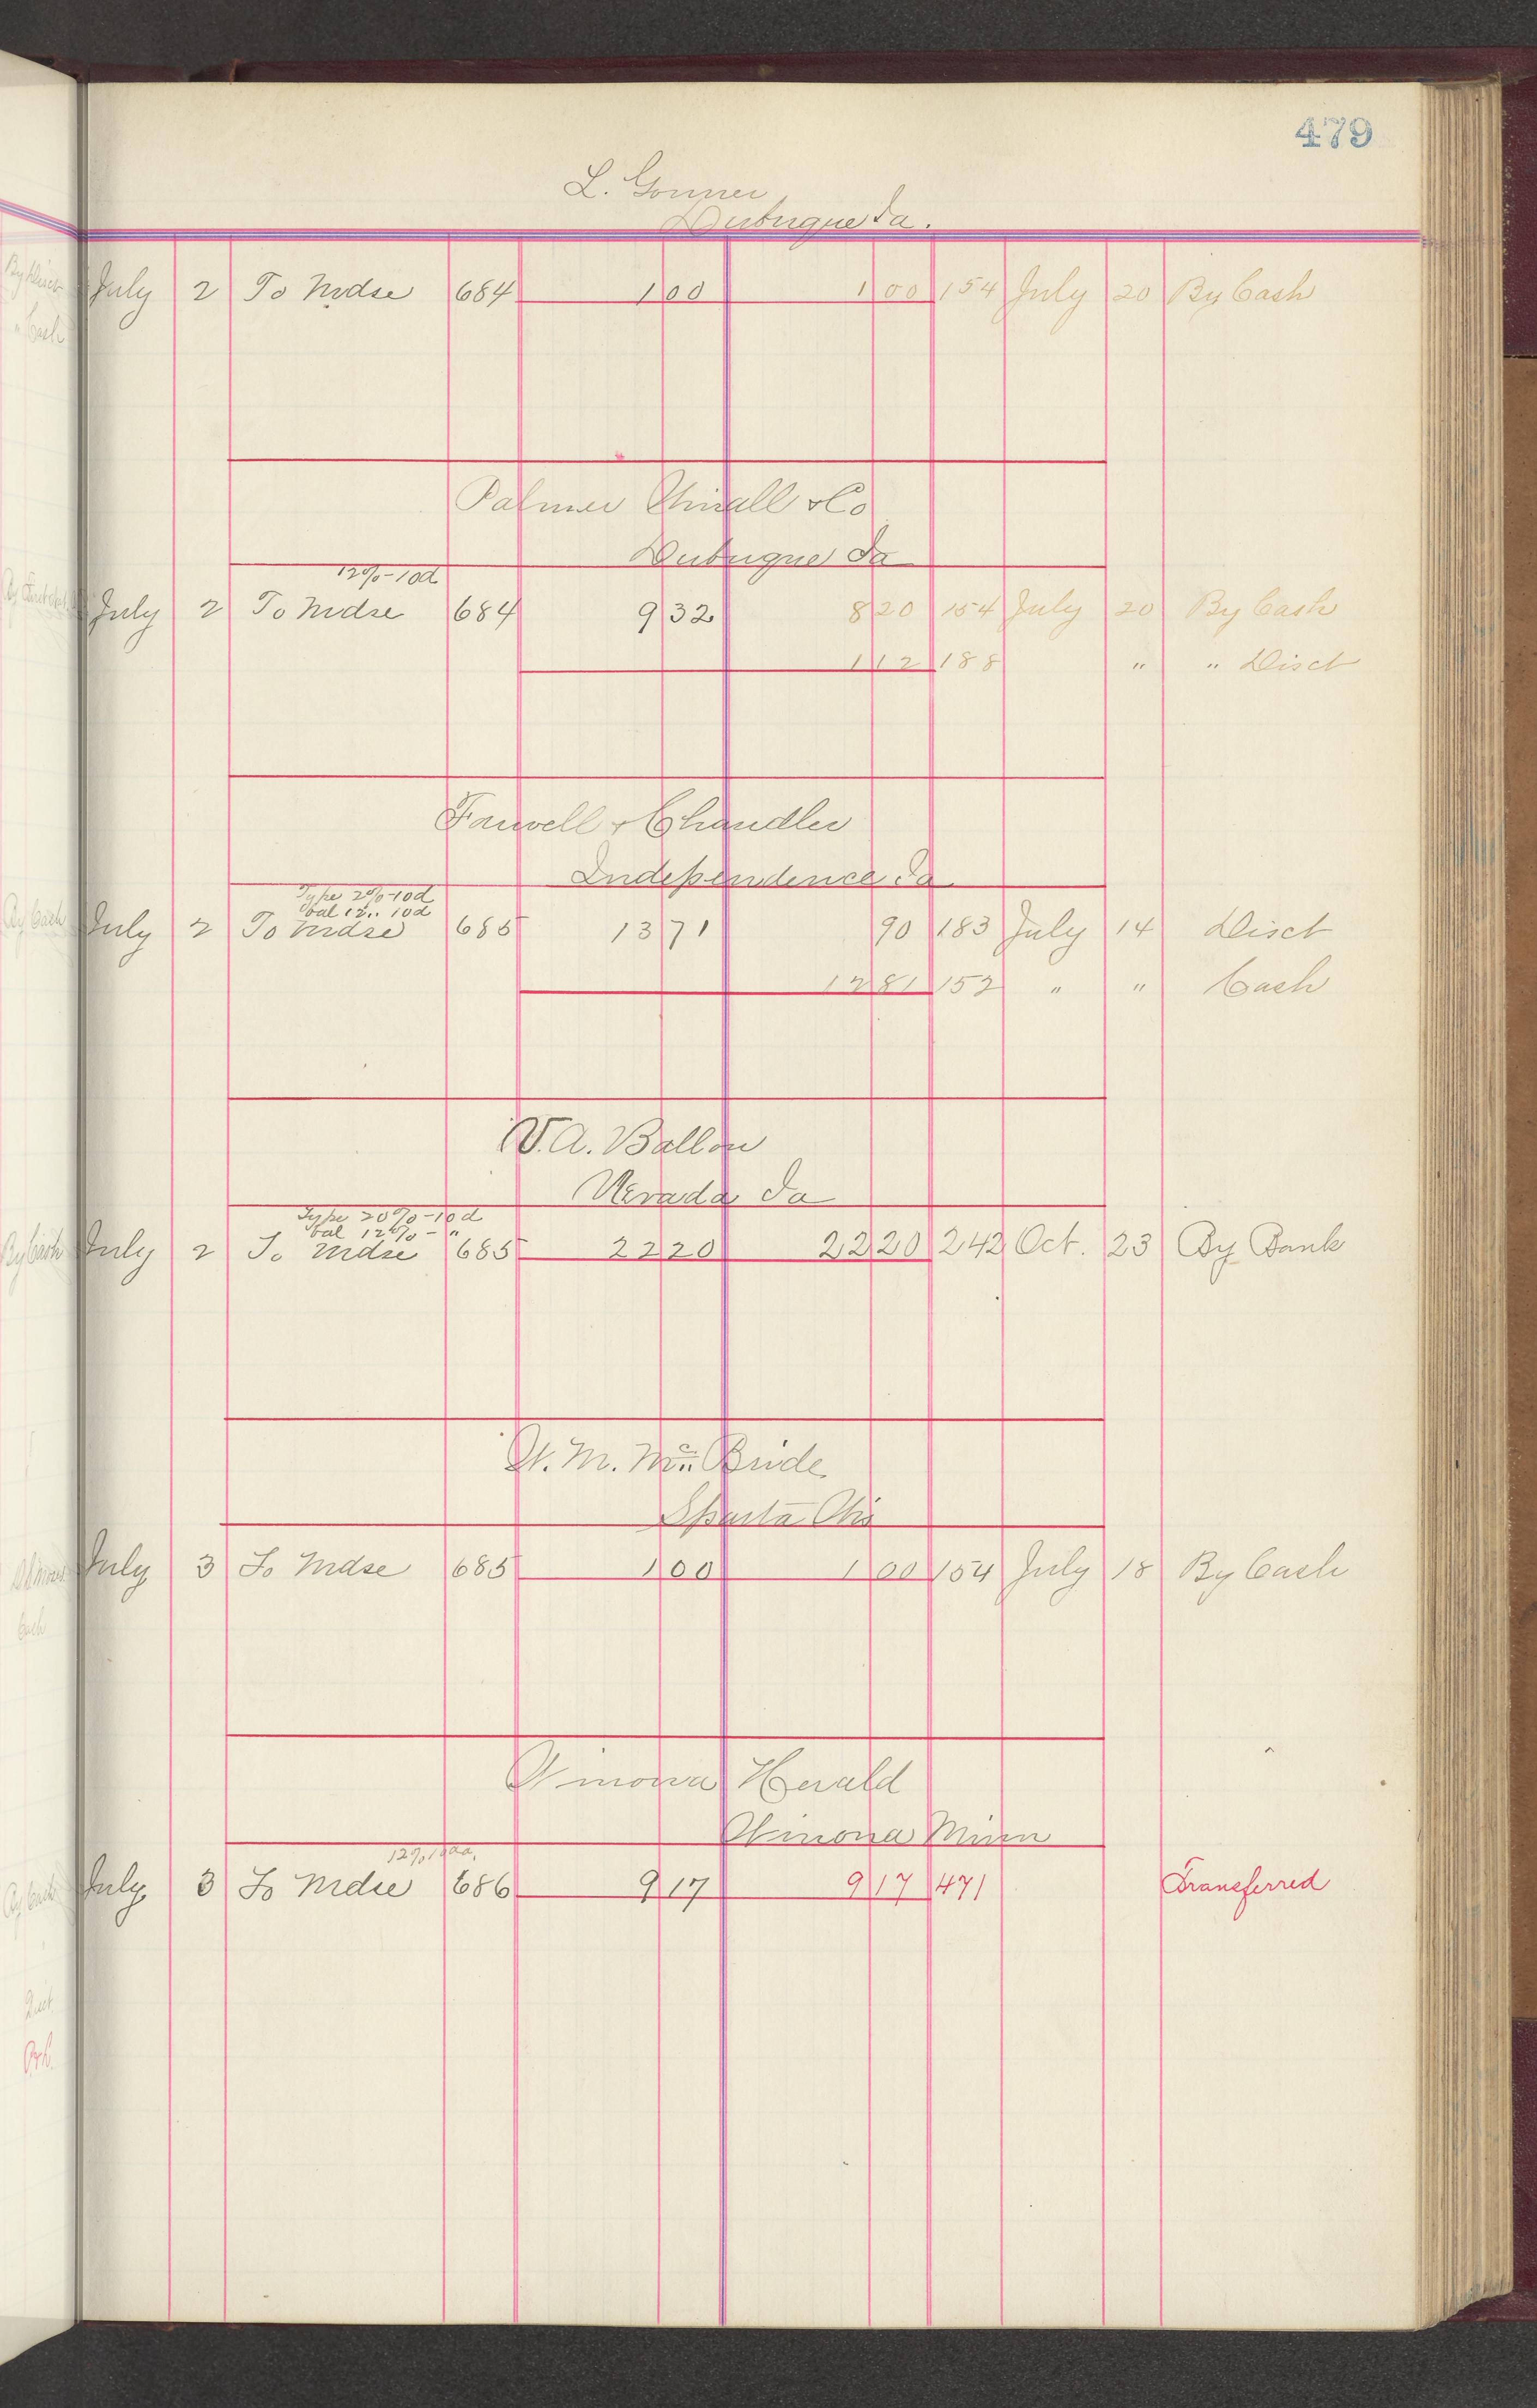 479
L. Gonner
Dubuque Ia.
July 2 To Mdse 684 1 00 1 00 154 July 20 By Cash
Palmer & Co
Dubuque Ia
12%-10d
July 2 To Mdse 684 9 32 8 20 154 July 20 By Cash
1 12 188 " " Disct
Farwell & Chandler
Independence Ia
Type 20%-10d
bal 12 " 10d
July 2 To Mdse 685 13 71 90 183 July 14 Disct
12 81 152 " " Cash
V. A. Ballou
Nevada Ia
Type 20%-10d
bal 12%-"
July 2 To Mdse 685 22 20 22 20 242 Oct. 23 By Bank
W. M. McBride
Sparta Wis
July 3 To Mdse 685 1 00 1 00 154 July 18 By Cash
Winona Herald
Winona Minn
12%
July 3 To Mdse 686 9 17 9 17 471 Transferred